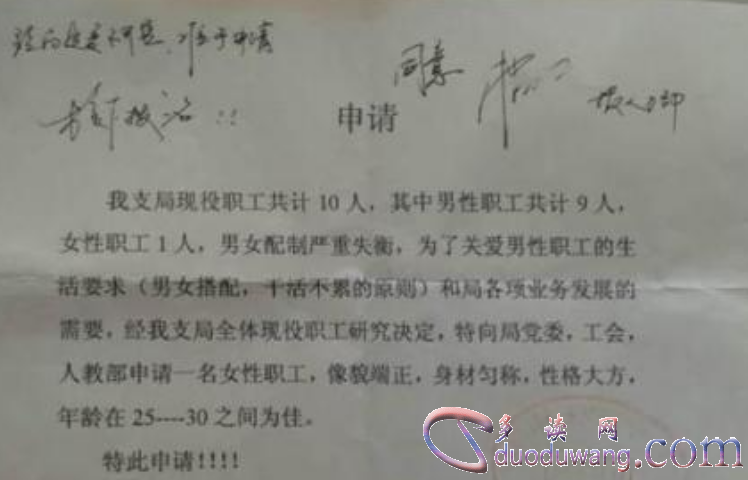 经局党委研究，准予申请
同意
申请
我支局现役职工共计 10 人，其中男性职工共计 9 人，
女性职工 1 人，男女配制严重失衡，为了关爱男性职工的生
活要求（男女搭配，干活不累的原则）和局各项业务发展的
需要，经我支局全体现役职工研究决定，特向局党委，工会，
人教部申请一名女性职工，像貌端正，身材匀称，性格大方，
年龄在 25----30 之间为佳。
特此申请!!!!
多读网
duoduwang.com